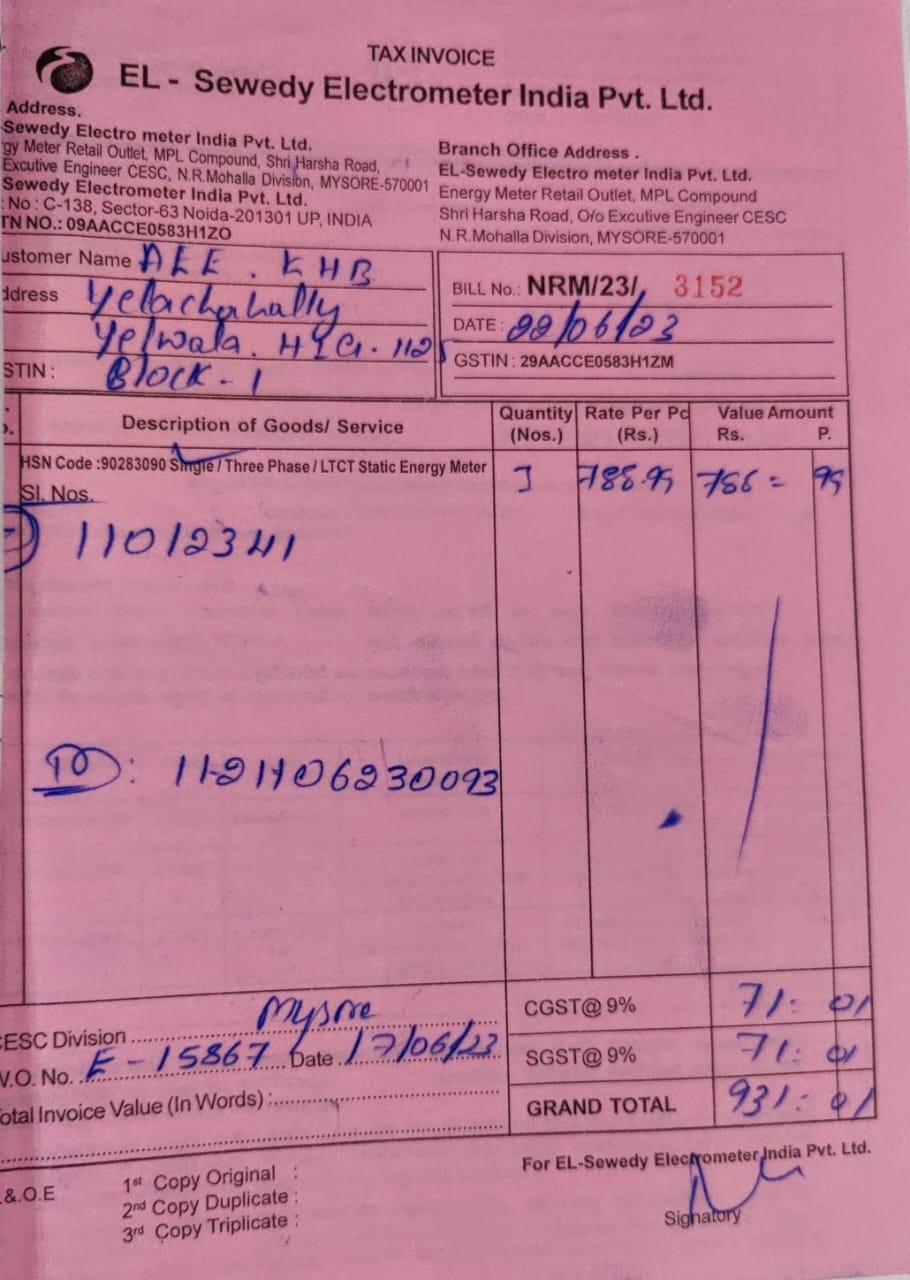 TAX INVOICE
EL - Sewedy Electrometer India Pvt. Ltd.
Address.
Sewedy Electro meter India Pvt. Ltd.
gy Meter Retail Outlet, MPL Compound, Shri Harsha Road,
Excutive Engineer CESC, N.R.Mohalla Division, MYSORE-570001
Sewedy Electrometer India Pvt. Ltd.
: No : C-138, Sector-63 Noida-201301 UP, INDIA
TN NO.: 09AACCE0583H1ZO
Branch Office Address .
EL-Sewedy Electro meter India Pvt. Ltd.
Energy Meter Retail Outlet, MPL Compound
Shri Harsha Road, O/o Excutive Engineer CESC
N.R.Mohalla Division, MYSORE-570001
ustomer Name AEE . KHB
ddress Yelachahally
Yelwala. HIG. 112
STIN : Block - 1
BILL No.: NRM/23/, 3152
DATE : 22/06/23
GSTIN : 29AACCE0583H1ZM
Description of Goods/ Service Quantity (Nos.) Rate Per Pc (Rs.) Value Amount Rs. P.
HSN Code :90283090 Single / Three Phase / LTCT Static Energy Meter 1 788.99 788 = 99
Sl. Nos.
11012341
ID: 1121106230093
CESC Division Mysore
W.O. No. E - 15867 Date 17/06/23
otal Invoice Value (In Words) :
CGST@ 9% 71: 01
SGST@ 9% 71: 01
GRAND TOTAL 931: 01
.&.O.E
1st Copy Original :
2nd Copy Duplicate :
3rd Copy Triplicate :
For EL-Sewedy Electrometer India Pvt. Ltd.
Signatory